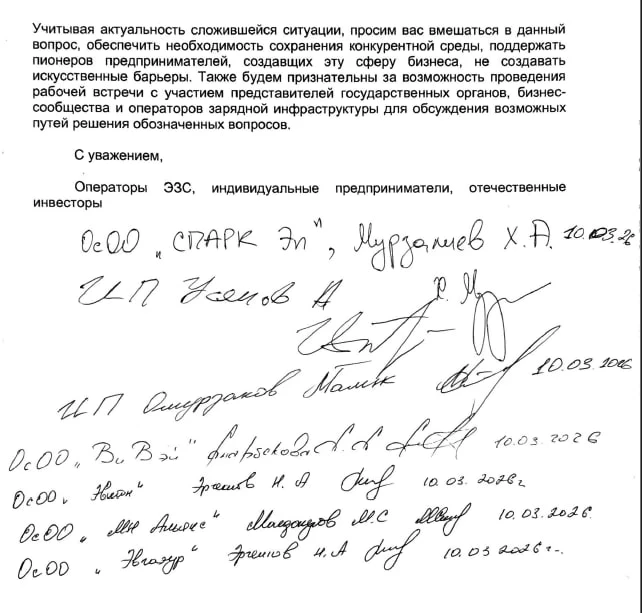 Учитывая актуальность сложившейся ситуации, просим вас вмешаться в данный
вопрос, обеспечить необходимость сохранения конкурентной среды, поддержать
пионеров предпринимателей, создавших эту сферу бизнеса, не создавать
искусственные барьеры. Также будем признательны за возможность проведения
рабочей встречи с участием представителей государственных органов, бизнес-
сообщества и операторов зарядной инфраструктуры для обсуждения возможных
путей решения обозначенных вопросов.
С уважением,
Операторы ЭЗС, индивидуальные предприниматели, отечественные
инвесторы
ОсОО "СПАРК Эл", Мурзалиев Х.А. 10.03.26
ИП Усенов А
ИП Омурзаков 10.03.2026
ОсОО "ВиВэй" 10.03.2026
ОсОО "Эвитон" Эргешов Н.А 10.03.2026г
ОсОО "МН Альянс" М.С 10.03.2026.
ОсОО Эргешов Н.А 10.03.2026г.